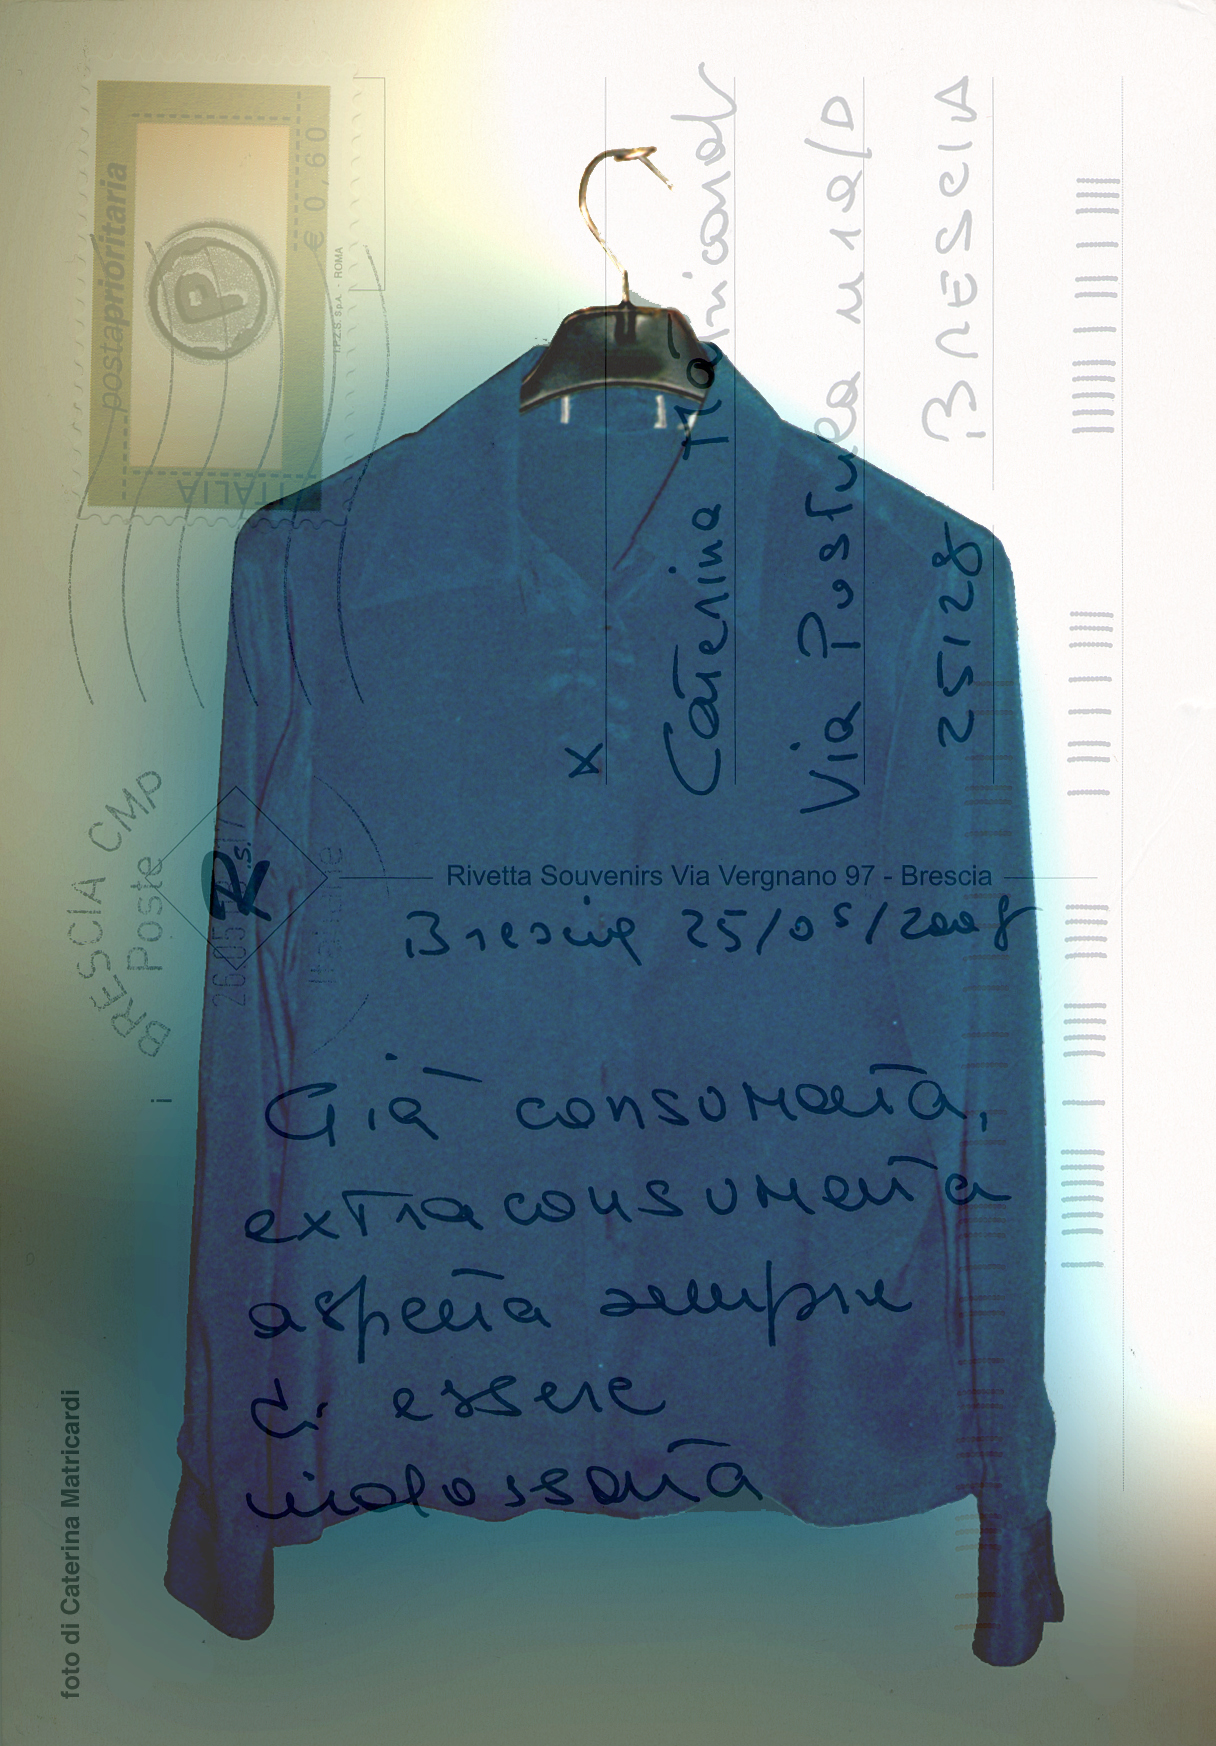 postaprioritaria
€ 0,60
P
ITALIA
I.P.Z.S. S.p.A. - ROMA
x Caterina Matricardi
Via Postumia
25128 BRESCIA
BRESCIA CMP
Poste
Italiane
R
s.i.
Rivetta Souvenirs Via Vergnano 97 - Brescia
Brescia 25/05/2008
Già consumata,
extraconsumata
aspetta sempre
di essere
indossata
foto di Caterina Matricardi